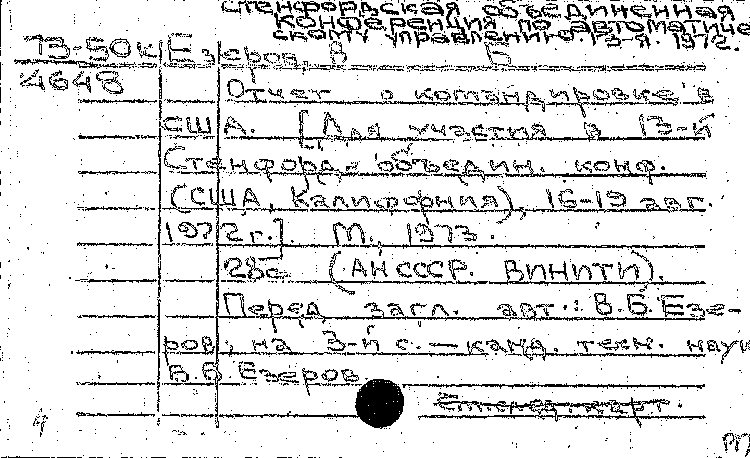 Стенфордская объединенная
конференция по автоматиче
скому управлению. 13-я. 1972.
73-50к Езеров, В Б
4648
Отчет о командировке в
США. [Для участия в 13-й
Стенфорд. объедин. конф.
(США, Калифорния), 16-19 авг.
1972 г.]. М., 1973.
28с. (АН СССР. ВИНИТИ).
Перед загл. авт.: В.Б. Езе-
ров; на 3-й с. — канд. техн. наук
В.Б Езеров
4